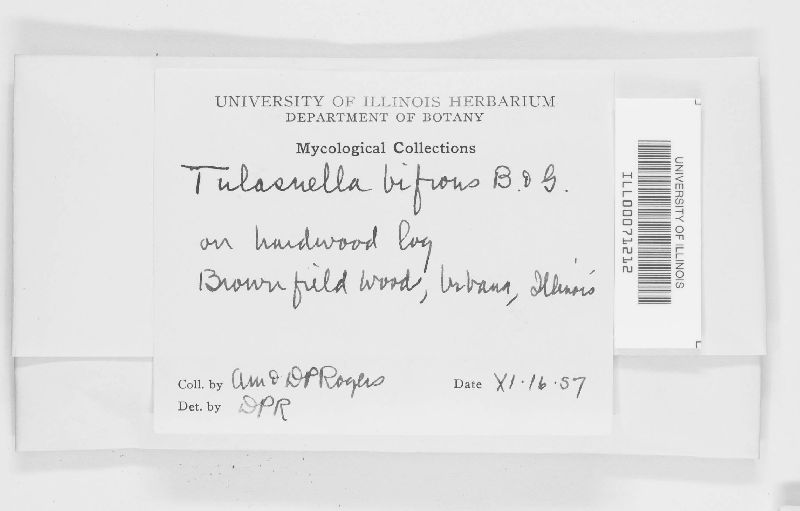 UNIVERSITY OF ILLINOIS HERBARIUM
DEPARTMENT OF BOTANY
Mycological Collections
Tulasnella bifrons B. & G.
on hardwood log
Brownfield Woods, Urbana, Illinois
Coll. by AM & DP Rogers
Date XI·16·57
Det. by DPR
UNIVERSITY OF ILLINOIS
ILL00071212